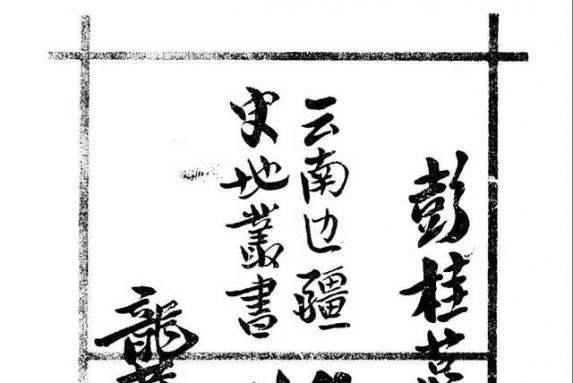 彭桂
云南边疆
史地叢書
龍